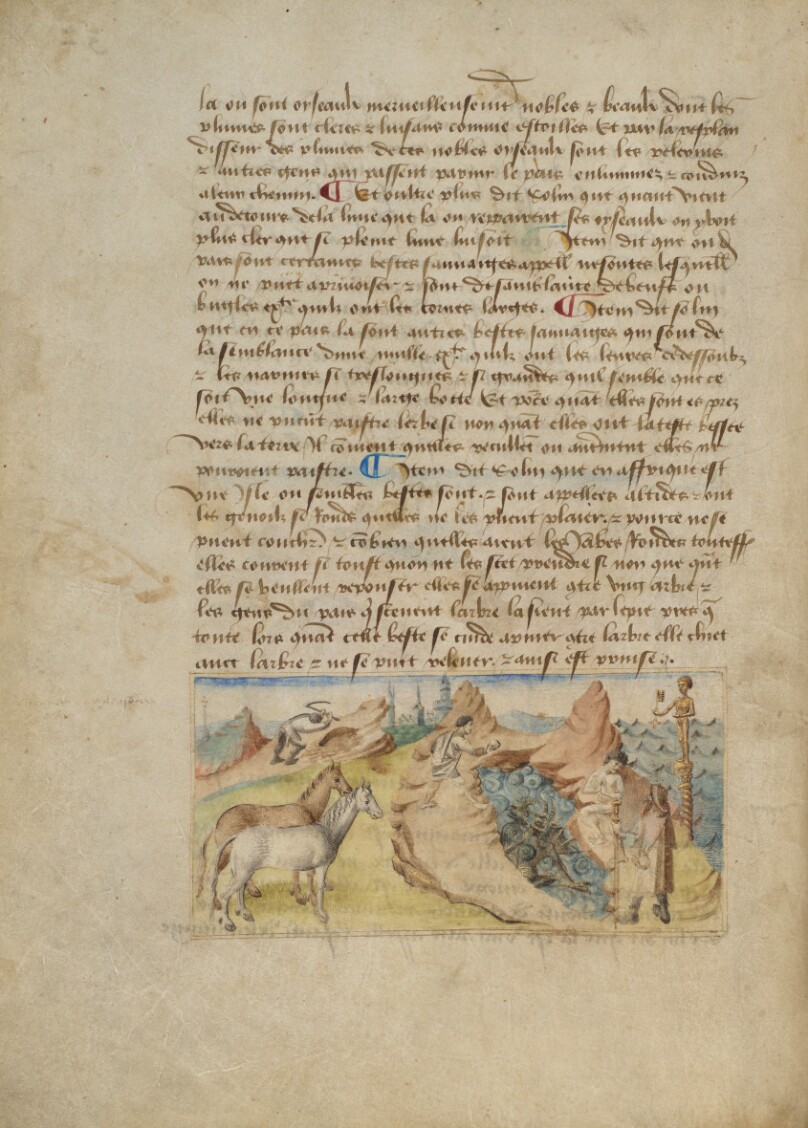 la ou sont oyseaulx merveilleusemt nobles ⁊ beaulx dont les
plumes sont cleres ⁊ luisans comme estoilles Et par la resplan
disseur des plumes de ces nobles oyseaulx sont les pelerins
⁊ autres gens qui passent parmy le pais enluminez ⁊ conduiz
a leur chemin. ¶ Et oultre plus dit Solin que quant vient
au decours de la lune que la ou repairent ses oyseaulx on y voit
plus cler que si pleine lune luisoit Item dit que ou d
pais sont certaines bestes sauvaiges appell
on ne puet aprivoiser ⁊ sont de samblance de beufs ou
bugles quilz ont les cornes larges. ¶ Item dit solin
que en ce pais la sont autres bestes sauvaiges qui sont de
la semblance dune mulle quilz ont les levres de dessoubz
⁊ les narines si treslongues ⁊ si grandes quil semble que ce
soit vne longue ⁊ large botte Et quāt elles sont es prez
elles ne peuēt paistre lerbe si non quāt elles ont la teste
vers la terre Il cōvient quelles recullēt ou autremt elles ne
pourroient paistre. ¶ Item dit Solin que en affrique est
vne Isle ou sembles bestes sont ⁊ sont appellees altides ⁊ ont
les genoilx si Rondes quelles ne les peuent plaier. ⁊ pource ne se
puent couchr ⁊ cōbien quelles aient les Jābes Rondes
elles courent si toust quon ne les scet prendre si non que qūt
elles se veullent repouser elles se apuient ung arbre ⁊
les gens du pais scevent larbre la sient par le pie pres
toute lors quāt celle beste se cuide apuier larbre elle chiet
avec larbre ⁊ ne se puet relever. ⁊ ainsi est prinse